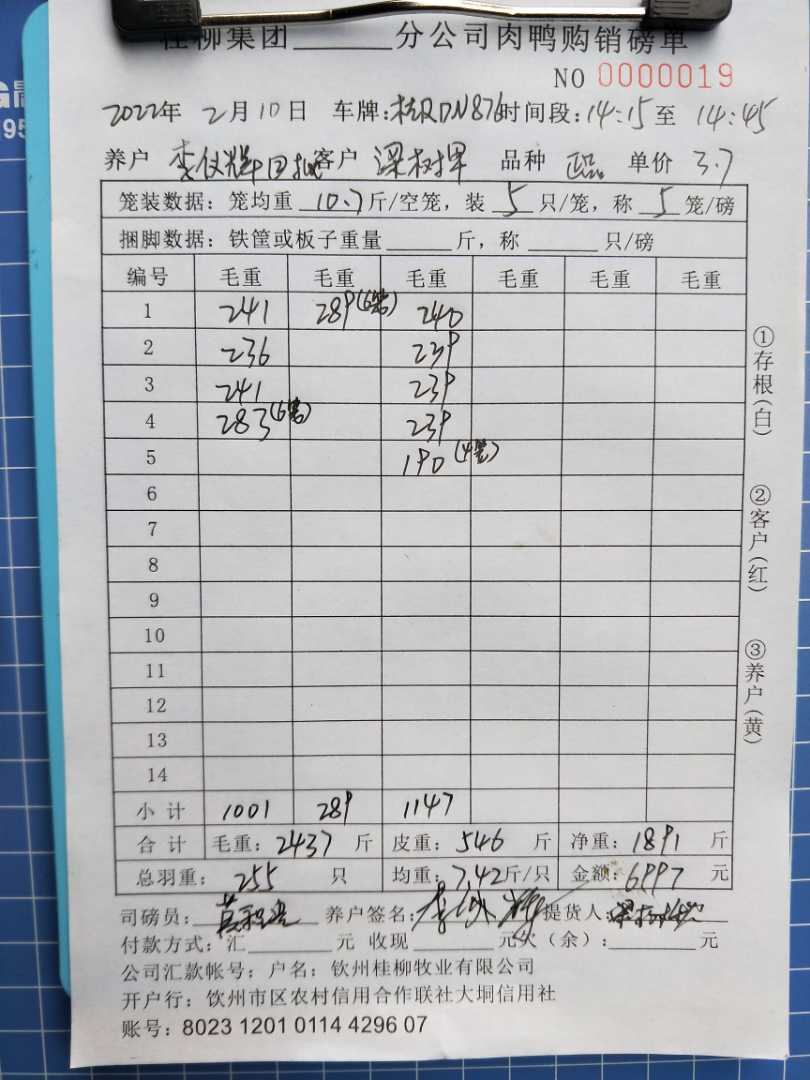 桂柳集团______分公司肉鸭购销磅单
NO 0000019
2022年 2月10日 车牌:桂RDN876 时间段:14:15至 14:45
养户 李仪辉 客户 梁树 品种 正品 单价 3.7
笼装数据: 笼均重 10.7 斤/空笼, 装 5 只/笼, 称 5 笼/磅
捆脚数据: 铁筐或板子重量______斤, 称______只/磅
编号 毛重 毛重 毛重 毛重 毛重 毛重
1 241 289(6笼) 240
2 236 239
3 241 239
4 283(6笼) 239
5 190(4笼)
6
7
8
9
10
11
12
13
14
小计 1001 289 1147
合计 毛重: 2437 斤 皮重: 546 斤 净重: 1891 斤
总羽重: 255 只 均重: 7.42斤/只 金额: 6997 元
司磅员: 养户签名: 提货人:
付款方式: 汇______元 收现______元欠(余):______元
公司汇款帐号: 户名: 钦州桂柳牧业有限公司
开户行: 钦州市区农村信用合作联社大垌信用社
账号: 8023 1201 0114 4296 07
①存根(白)
②客户(红)
③养户(黄)